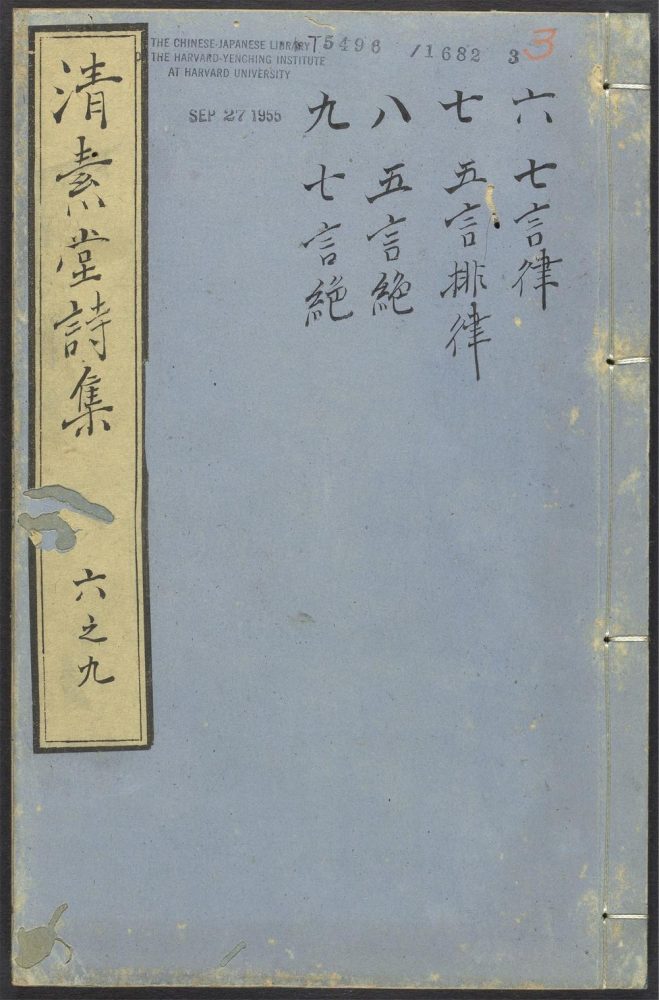 THE CHINESE-JAPANESE LIBRARY
OF THE HARVARD-YENCHING INSTITUTE
AT HARVARD UNIVERSITY
SEP 27 1955
T5496 /1682 3
3
六 七言律
七 五言排律
八 五言絶
九 七言絶
清素堂詩集
六之九